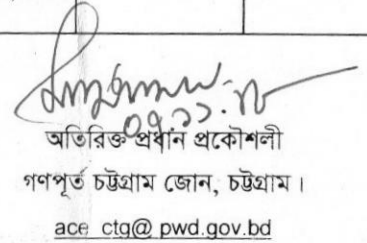 ০৭.১১.১৮
অতিরিক্ত প্রধান প্রকৌশলী
গণপূর্ত চট্টগ্রাম জোন, চট্টগ্রাম।
ace_ctg@ pwd.gov.bd